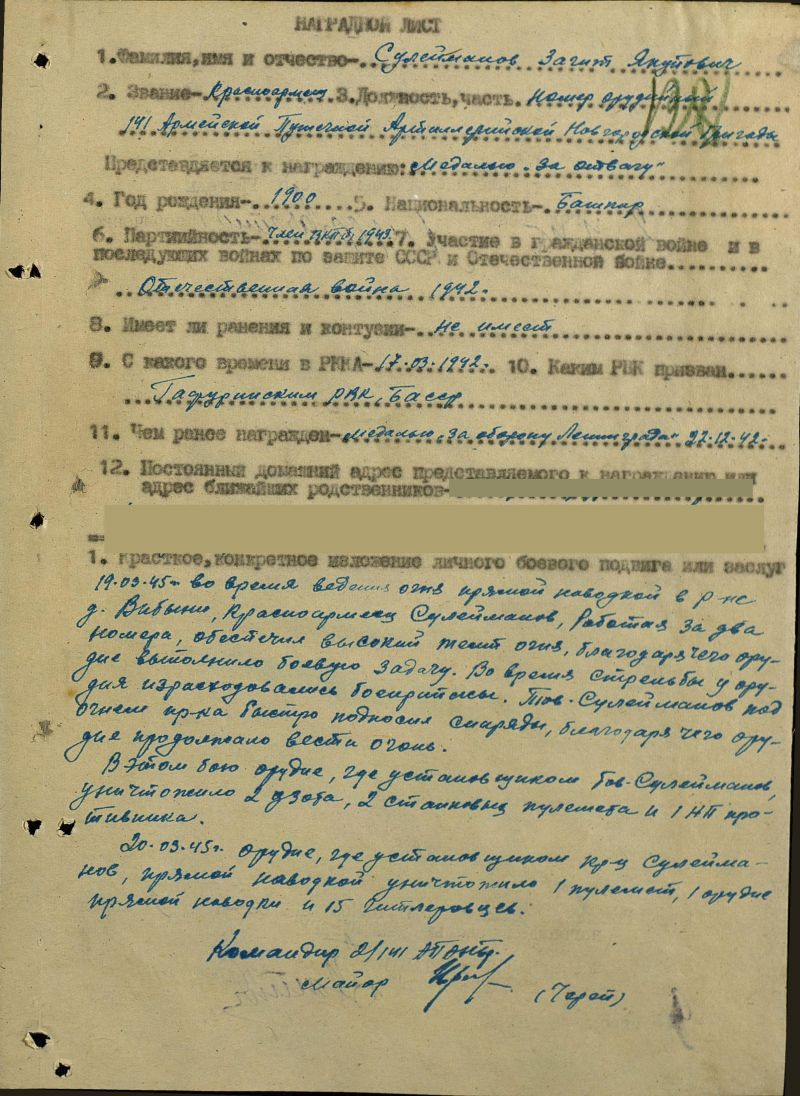 НАГРАДНОЙ ЛИСТ
1. Фамилия, имя и отчество- Сулейманов Загит Якупович
2. Звание- Красноармеец 3. Должность, часть. Номер орудийный
141 Армейской Пушечной Артиллерийской Новгородской бригады
Представдяется к награждению: Медалью „За отвагу"
4. Год рождения- 1900 5. Национальность- Башкир
6. Партийность- Член ВКП(б) 1943. 7. Участие в гражданской войне и в
последующих войнах по защите СССР и Отечественной войне.
Отечественная война 1942г.
8. Имеет ли ранения и контузии- не имеет
9. С какого времени в РККА- 17.03.1942г. 10. Каким РВК призван
Гафурийским РВК, Басср
11. Чем ранее награжден- медалью „За оборону Ленинграда" 22.12.42г.
12. Постоянный домашний адрес представляемого к награждению или
адрес ближайших родственников-
1. Красткое, конкретное изложение личного боевого подвига или заслуг
19.03.45г. во время ведения огня прямой наводкой в р-не
д. красноармеец Сулейманов, работая за два
номера, обеспечил высокий темп огня, благодаря чего ору-
дие выполнило боевую задачу. Во время стрельбы у ору-
дия израсходовались боеприпасы. Тов. Сулейманов под
огнем пр-ка быстро подносил снаряды, благодаря чего ору-
дие продолжало вести огонь.
В этом бою орудие, где установщиком тов. Сулейманов,
уничтожило 2 дзота, 2 станковых пулемета и 1 НП про-
тивника.
20.03.45г. орудие, где установщиком кр-ц Сулейма-
нов, прямой наводкой уничтожило 1 пулемет, 1 орудие
прямой наводки и 15 гитлеровцев.
Командир 2/141
Майор
(Черей)